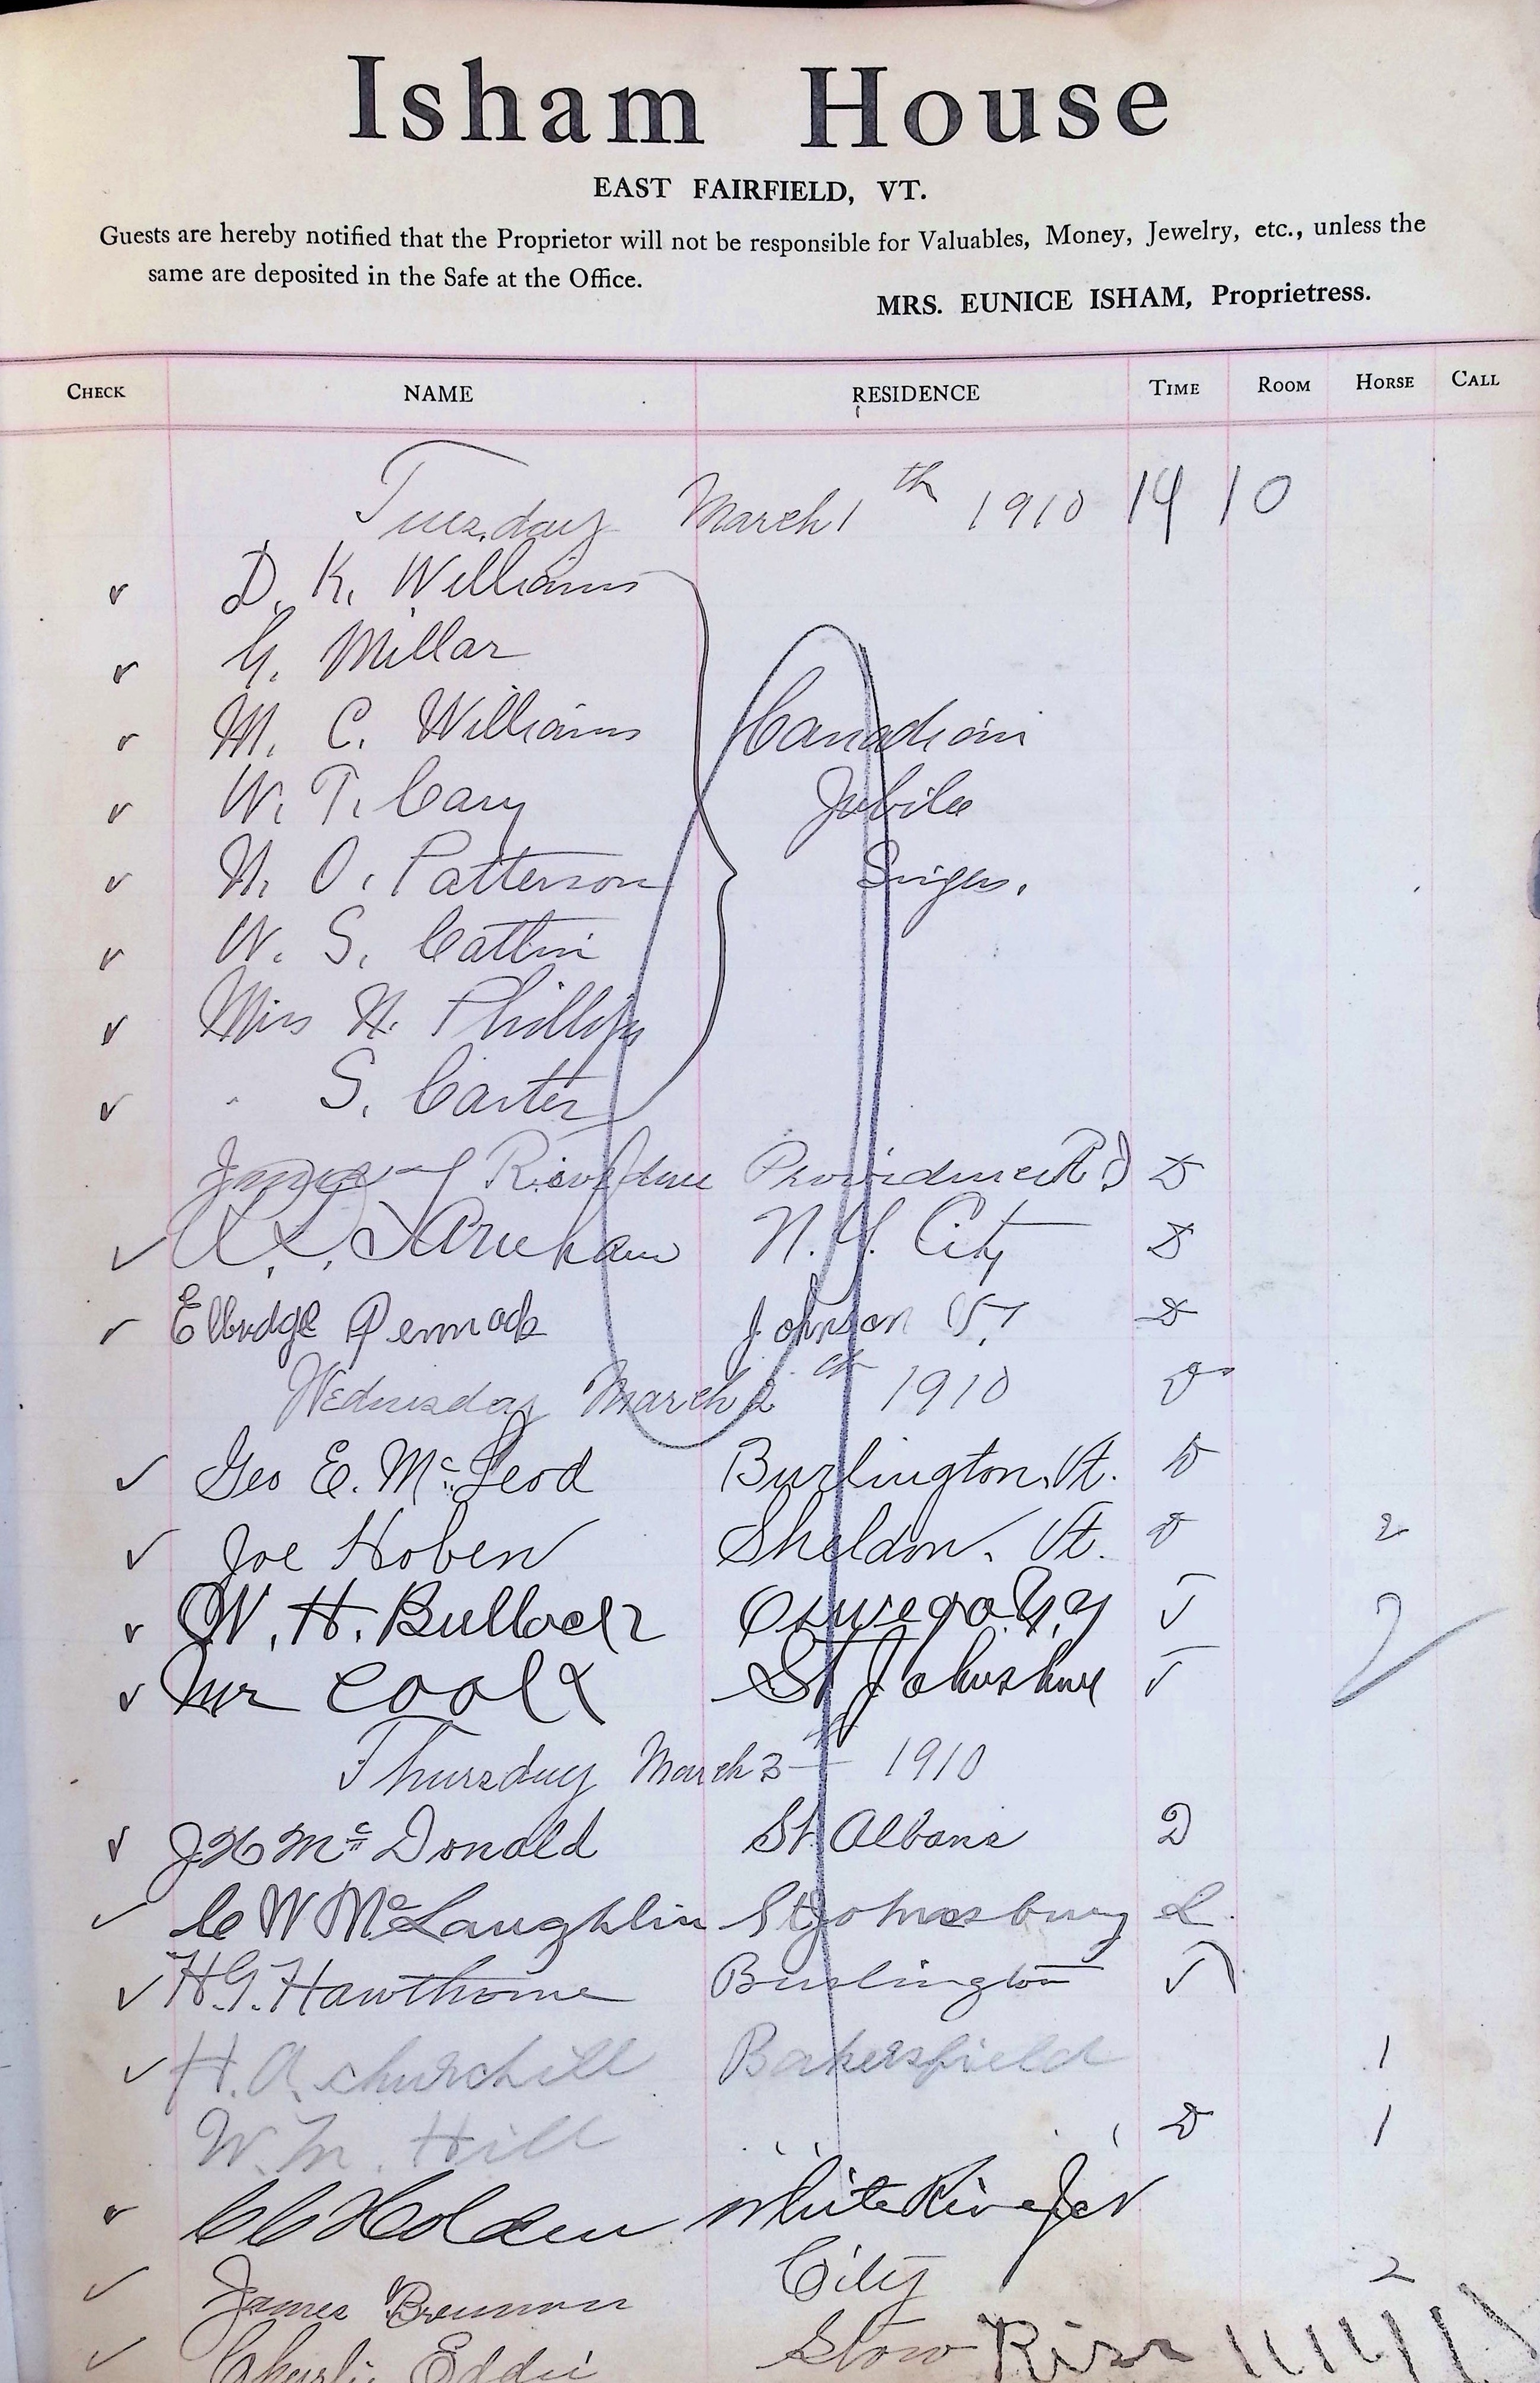 Isham House
EAST FAIRFIELD, VT.
Guests are hereby notified that the Proprietor will not be responsible for Valuables, Money, Jewelry, etc., unless the
same are deposited in the Safe at the Office.
MRS. EUNICE ISHAM, Proprietress.
CHECK NAME RESIDENCE TIME ROOM HORSE CALL
Tuesday March 1th 1910 1910
D. K. Williams
G. Millar
M. C. Williams Canadian
W. T. Cary Jubilee
H. O. Patterson
W. S. Catlin
Miss H. Phillips
" S. Carter
Providence R I D
N. Y. City D
Johnson Vt D
Wednesday March 2th 1910 D
Geo E. McLeod Burlington, Vt. D
Joe Hoben Sheldon, Vt. D 2
W. H. Bullock Oswego N.Y
Mr Cook St Johnsbury
Thursday March 3th 1910
J H McDonald St. Albans D
C W McLaughlin St Johnsbury L
H. G. Hawthorne Burlington
H. A. Churchill Bakersfield 1
W. M. Hill " " D 1
C C Holden White River Jct
James Brennan City 2
Charlie Eddie Stow